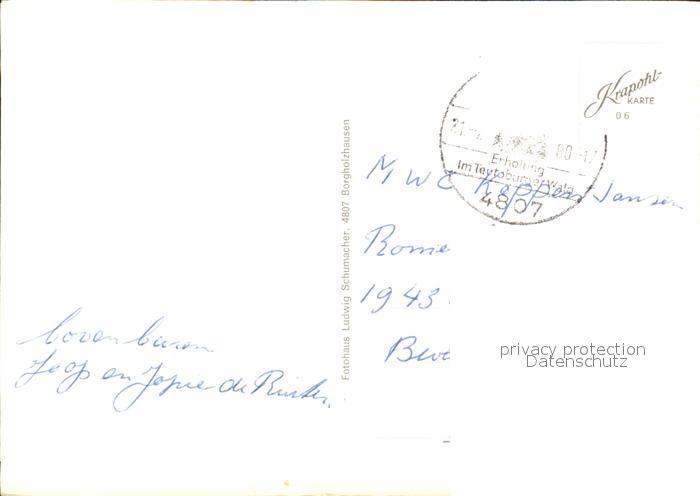 Krapohl-
KARTE
06
21. 80-17
Erholung
im Teutoburger Wald
4807
Fotohaus Ludwig Schumacher, 4807 Borgholzhausen
M W C Koppen Jansen
Rome
1943
Beve
boven buren
Joop en Jopie de Ruiter
privacy protection
Datenschutz